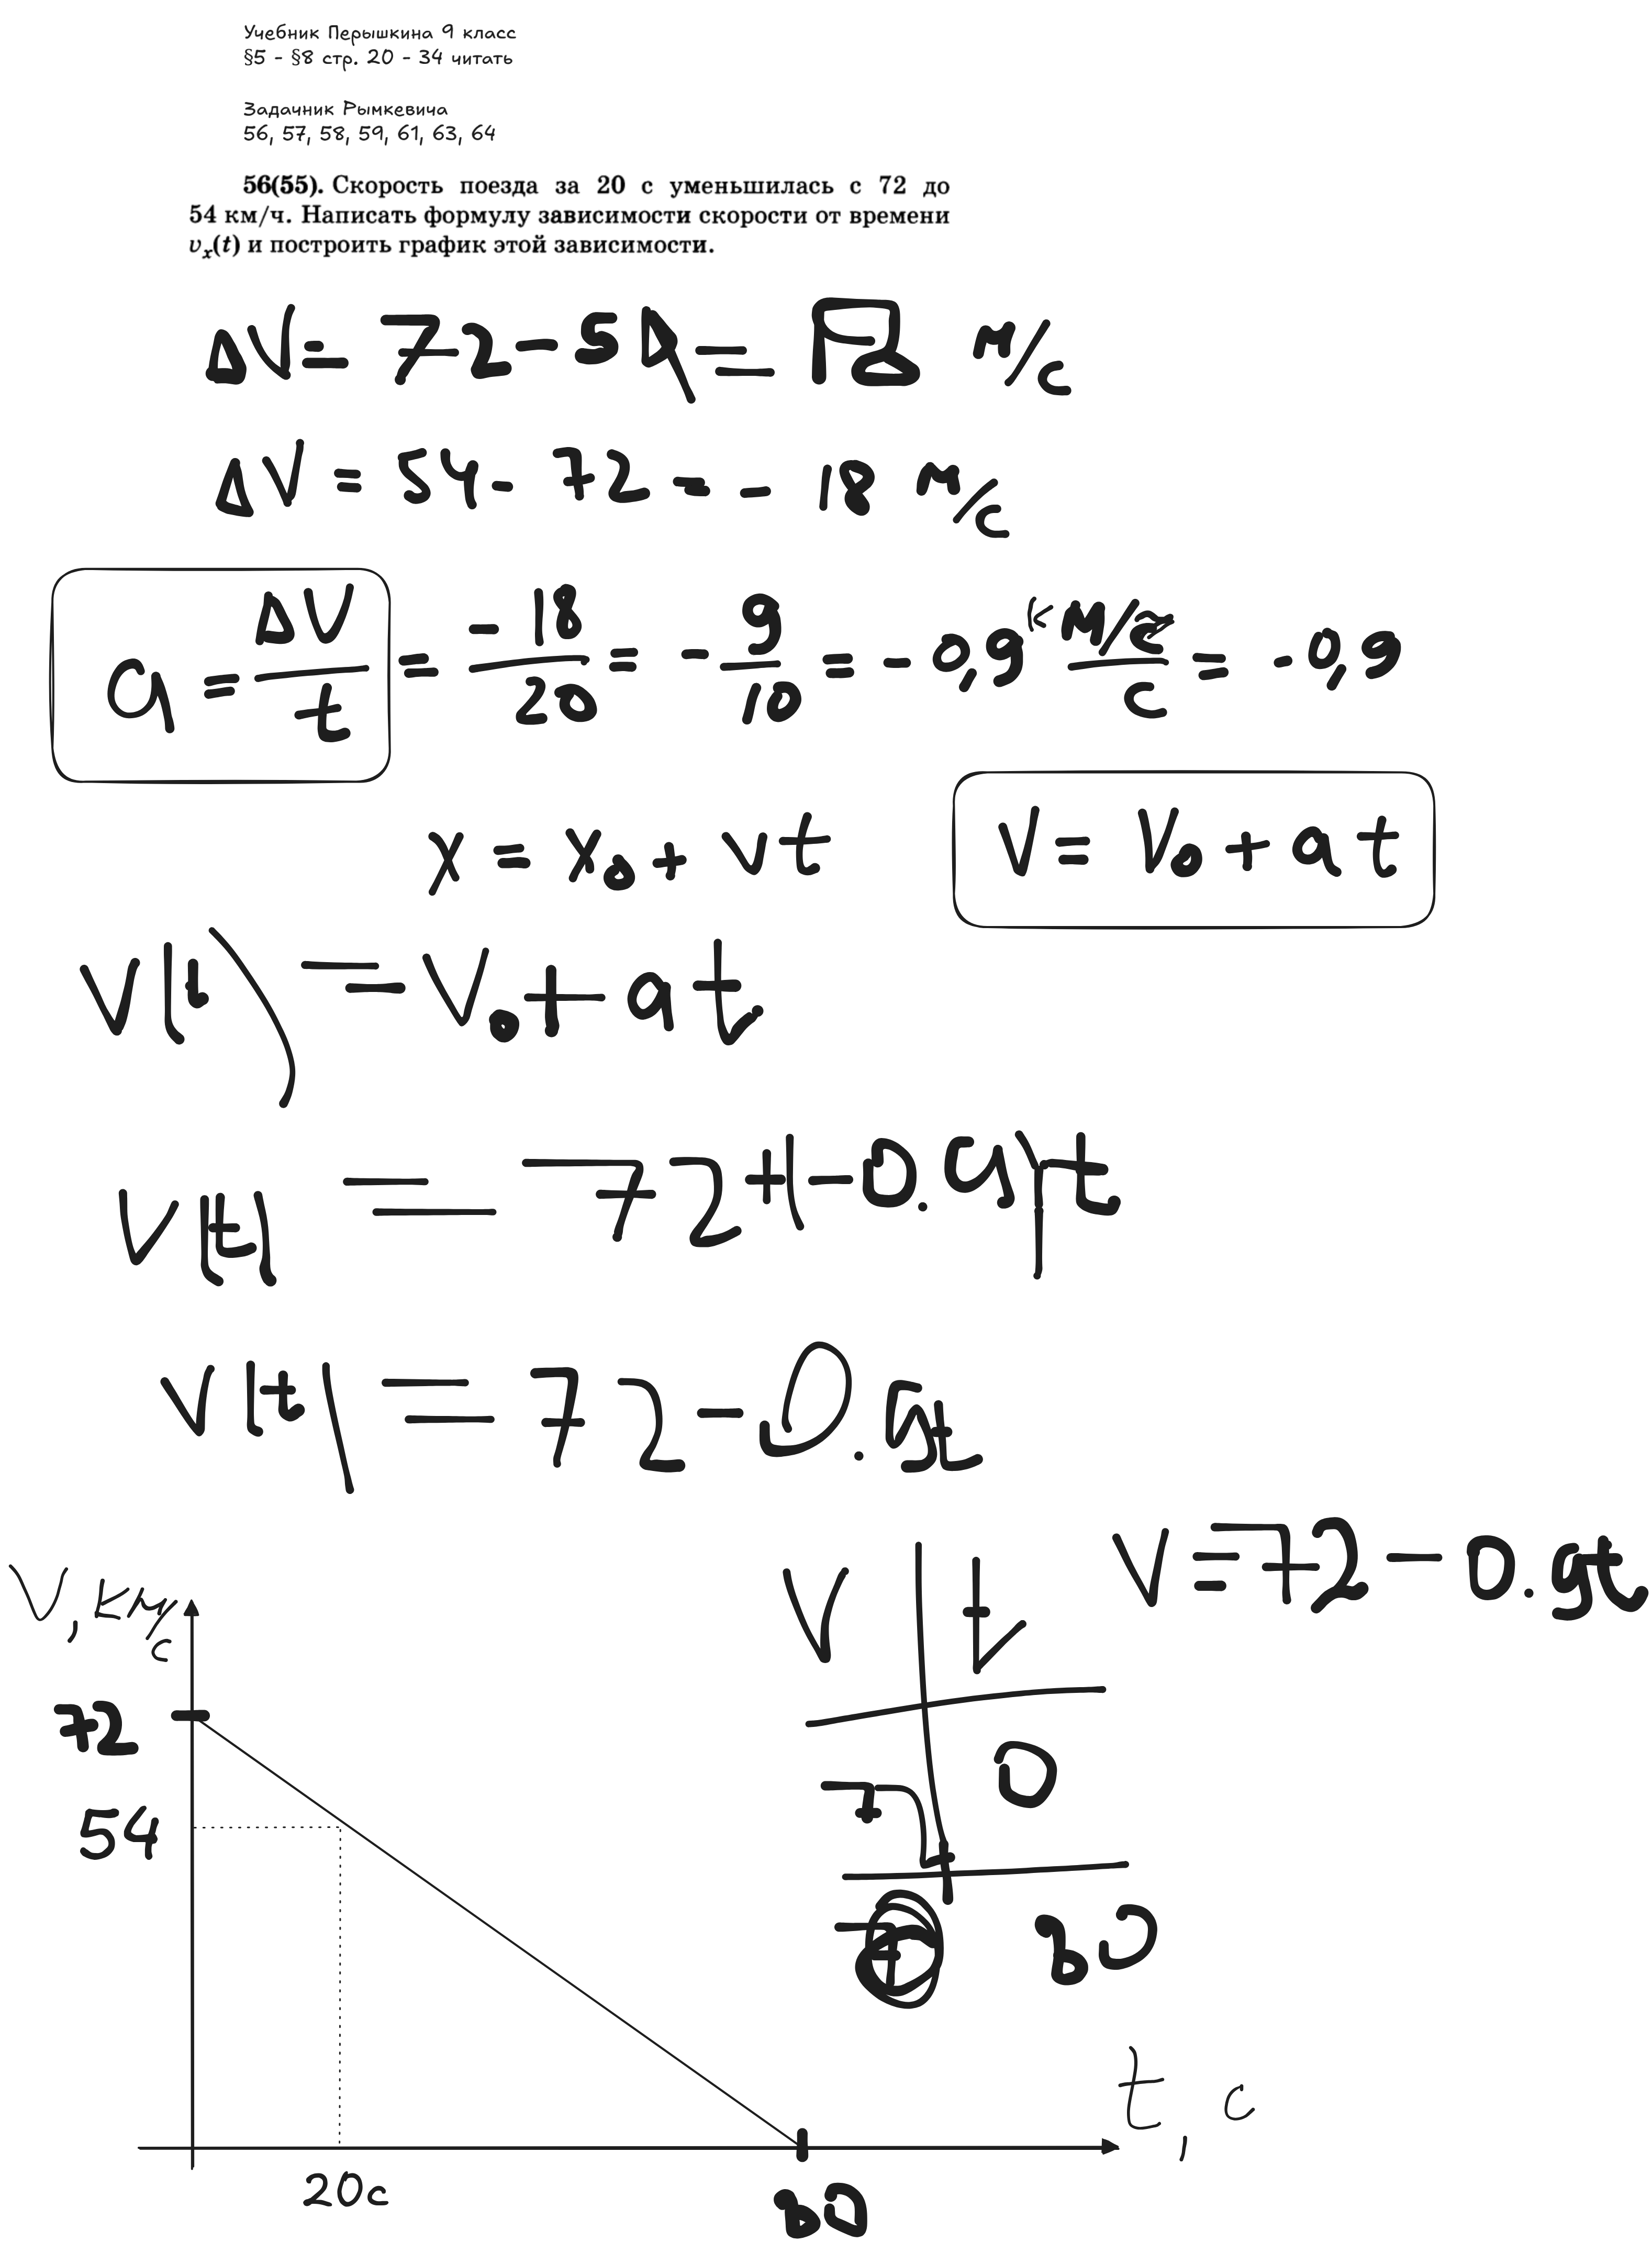 Учебник Перышкина 9 класс
§5 - §8 стр. 20 - 34 читать
Задачник Рымкевича
56, 57, 58, 59, 61, 63, 64
56(55). Скорость поезда за 20 с уменьшилась с 72 до
54 км/ч. Написать формулу зависимости скорости от времени
vₓ(t) и построить график этой зависимости.
ΔV = 72 - 54 = 18 м/с
ΔV = 54 - 72 = - 18 м/с
a = ΔV/t = -18/20 = - 9/10 = - 0,9 км/с/с = - 0,9
x = x₀ + vt
V = V₀ + at
V(t) = V₀ + at
V(t) = 72 + (-0.9)t
V(t) = 72 - 0.9t
V = 72 - 0.9t
V t
72 0
80
V, км/с
72
54
20с
80
t, с